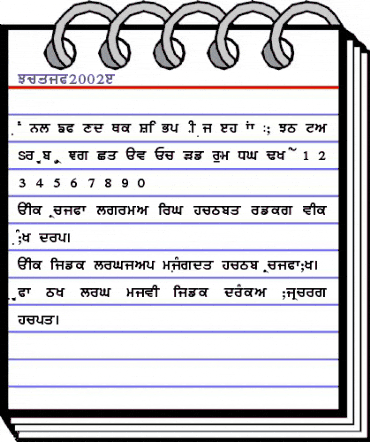 ਝਚਤਜਫ2002ੲ
ਨਲ ਙਫ ਣਦ ਥਕ ਸ਼ਿ ਭਪ ੀ ਜ ੲਹ ਾਂ ; ਝਠ ਟਅ
Sਰ ਬ ਵਗ ਛਤ ੳਵ ਓਚ ੜਡ ਰੁਮ ਧਘ ਢਖ ~ 1 2
3 4 5 6 7 8 9 0
ੳੀਕ ੂਚਜਫਾ ਲਗਰਮਅ ਰਿਘ ਹਚਠਬਤ ਰਡਕਗ ਵੀਕ
;ਖ ਦਰਪ।
ੳੀਕ ਜਿਡਕ ਲਰਘਜਅਪ ਮਜ਼ੰਗਦਤ ਹਚਠਬ ੂਚਜਫਾ;ਖ।
ੂਫਾ ਠਖ ਲਰਘ ਮਜਵੀ ਜਿਡਕ ਦਰੰਕਅ ;ਜ੍ਰਚਰਗ
ਹਚਪਤ।